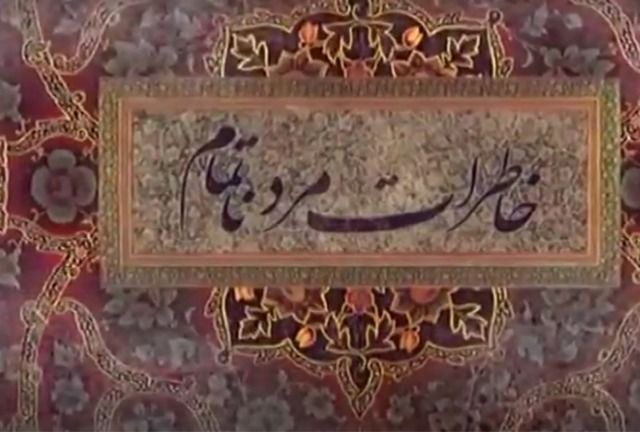 خاطرات مرد ناتمام